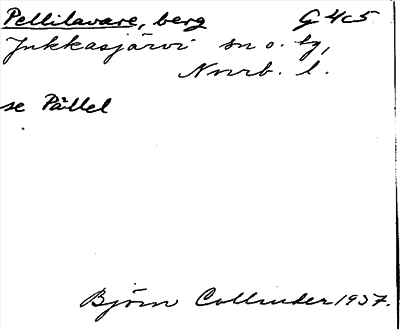 Pellilavare, berg G 4c5
Jukkasjärvi sn o. tg,
Norrb. l.
se Pållel
Björn Collinder 1937.